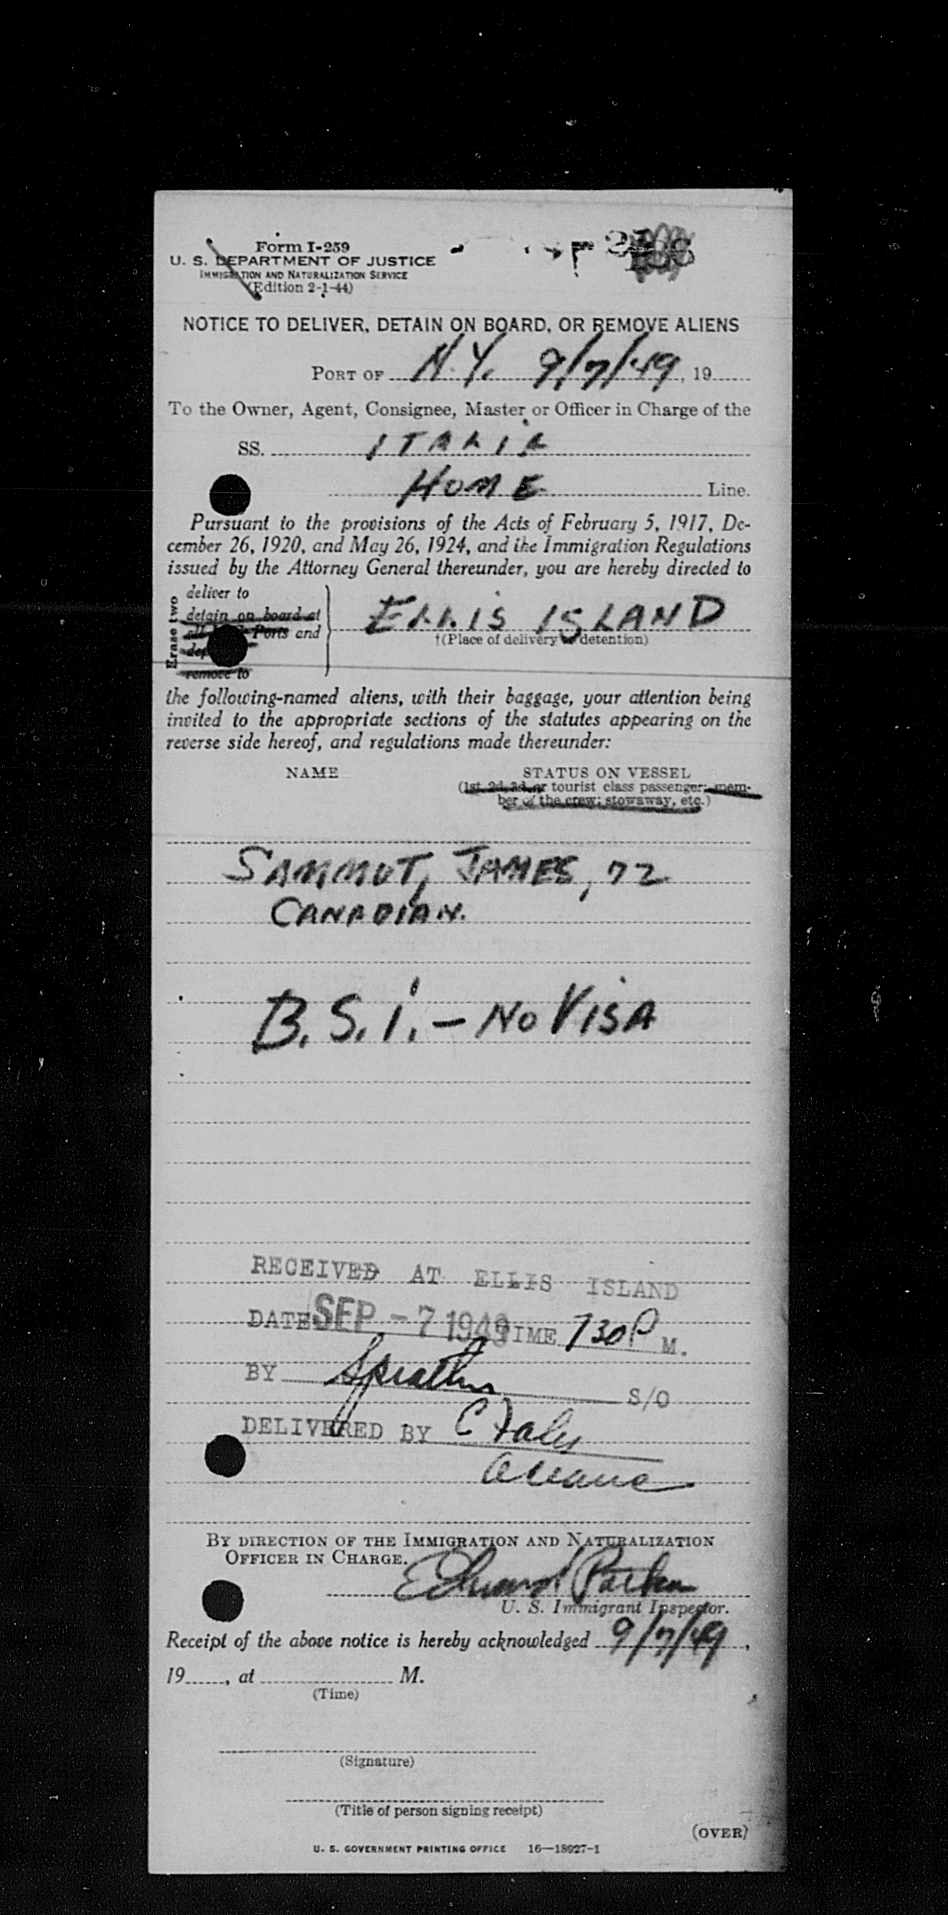 Form I-259
U. S. DEPARTMENT OF JUSTICE
IMMIGRATION AND NATURALIZATION SERVICE
(Edition 2-1-44)
NOTICE TO DELIVER, DETAIN ON BOARD, OR REMOVE ALIENS
PORT OF N.Y. 9/7/49, 19
To the Owner, Agent, Consignee, Master or Officer in Charge of the
SS. ITALIA
HOME Line.
Pursuant to the provisions of the Acts of February 5, 1917, De-
cember 26, 1920, and May 26, 1924, and the Immigration Regulations
issued by the Attorney General thereunder, you are hereby directed to
Erase two
deliver to
detain on board at
Ports and
remove to
ELLIS ISLAND
†(Place of delivery or detention)
the following-named aliens, with their baggage, your attention being
invited to the appropriate sections of the statutes appearing on the
reverse side hereof, and regulations made thereunder:
NAME STATUS ON VESSEL
(1st, 2d, 3d, or tourist class passenger; mem-
ber of the crew; stowaway, etc.)
SAMMUT, JAMES, 72
CANADIAN.
B.S.I. - NO VISA
RECEIVED AT ELLIS ISLAND
DATE SEP - 7 1949 TIME 730 P M.
BY S/O
DELIVERED BY C
BY DIRECTION OF THE IMMIGRATION AND NATURALIZATION
OFFICER IN CHARGE.
Edward Parker
U. S. Immigrant Inspector.
Receipt of the above notice is hereby acknowledged 9/7/49,
19, at M.
(Time)
(Signature)
(Title of person signing receipt)
(OVER)
U. S. GOVERNMENT PRINTING OFFICE 16—18927-1